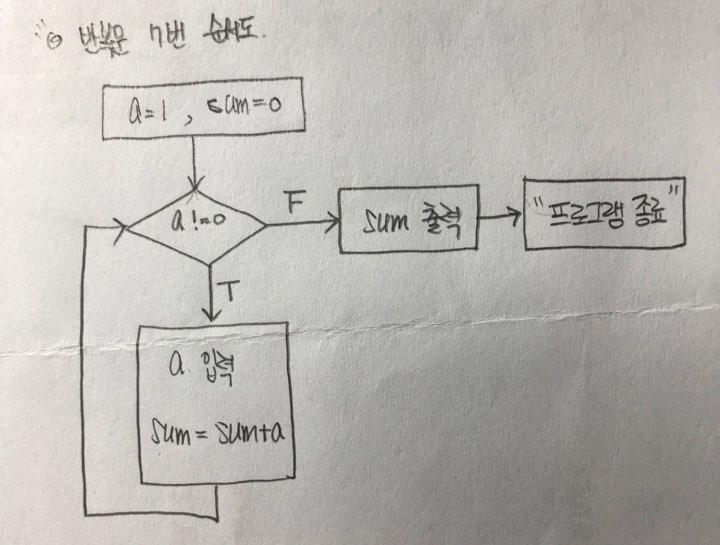 반복문 7번 순서도.
a=1, sum=0
a!=0
F
sum 출력
"프로그램 종료"
T
a 입력
sum=sum+a